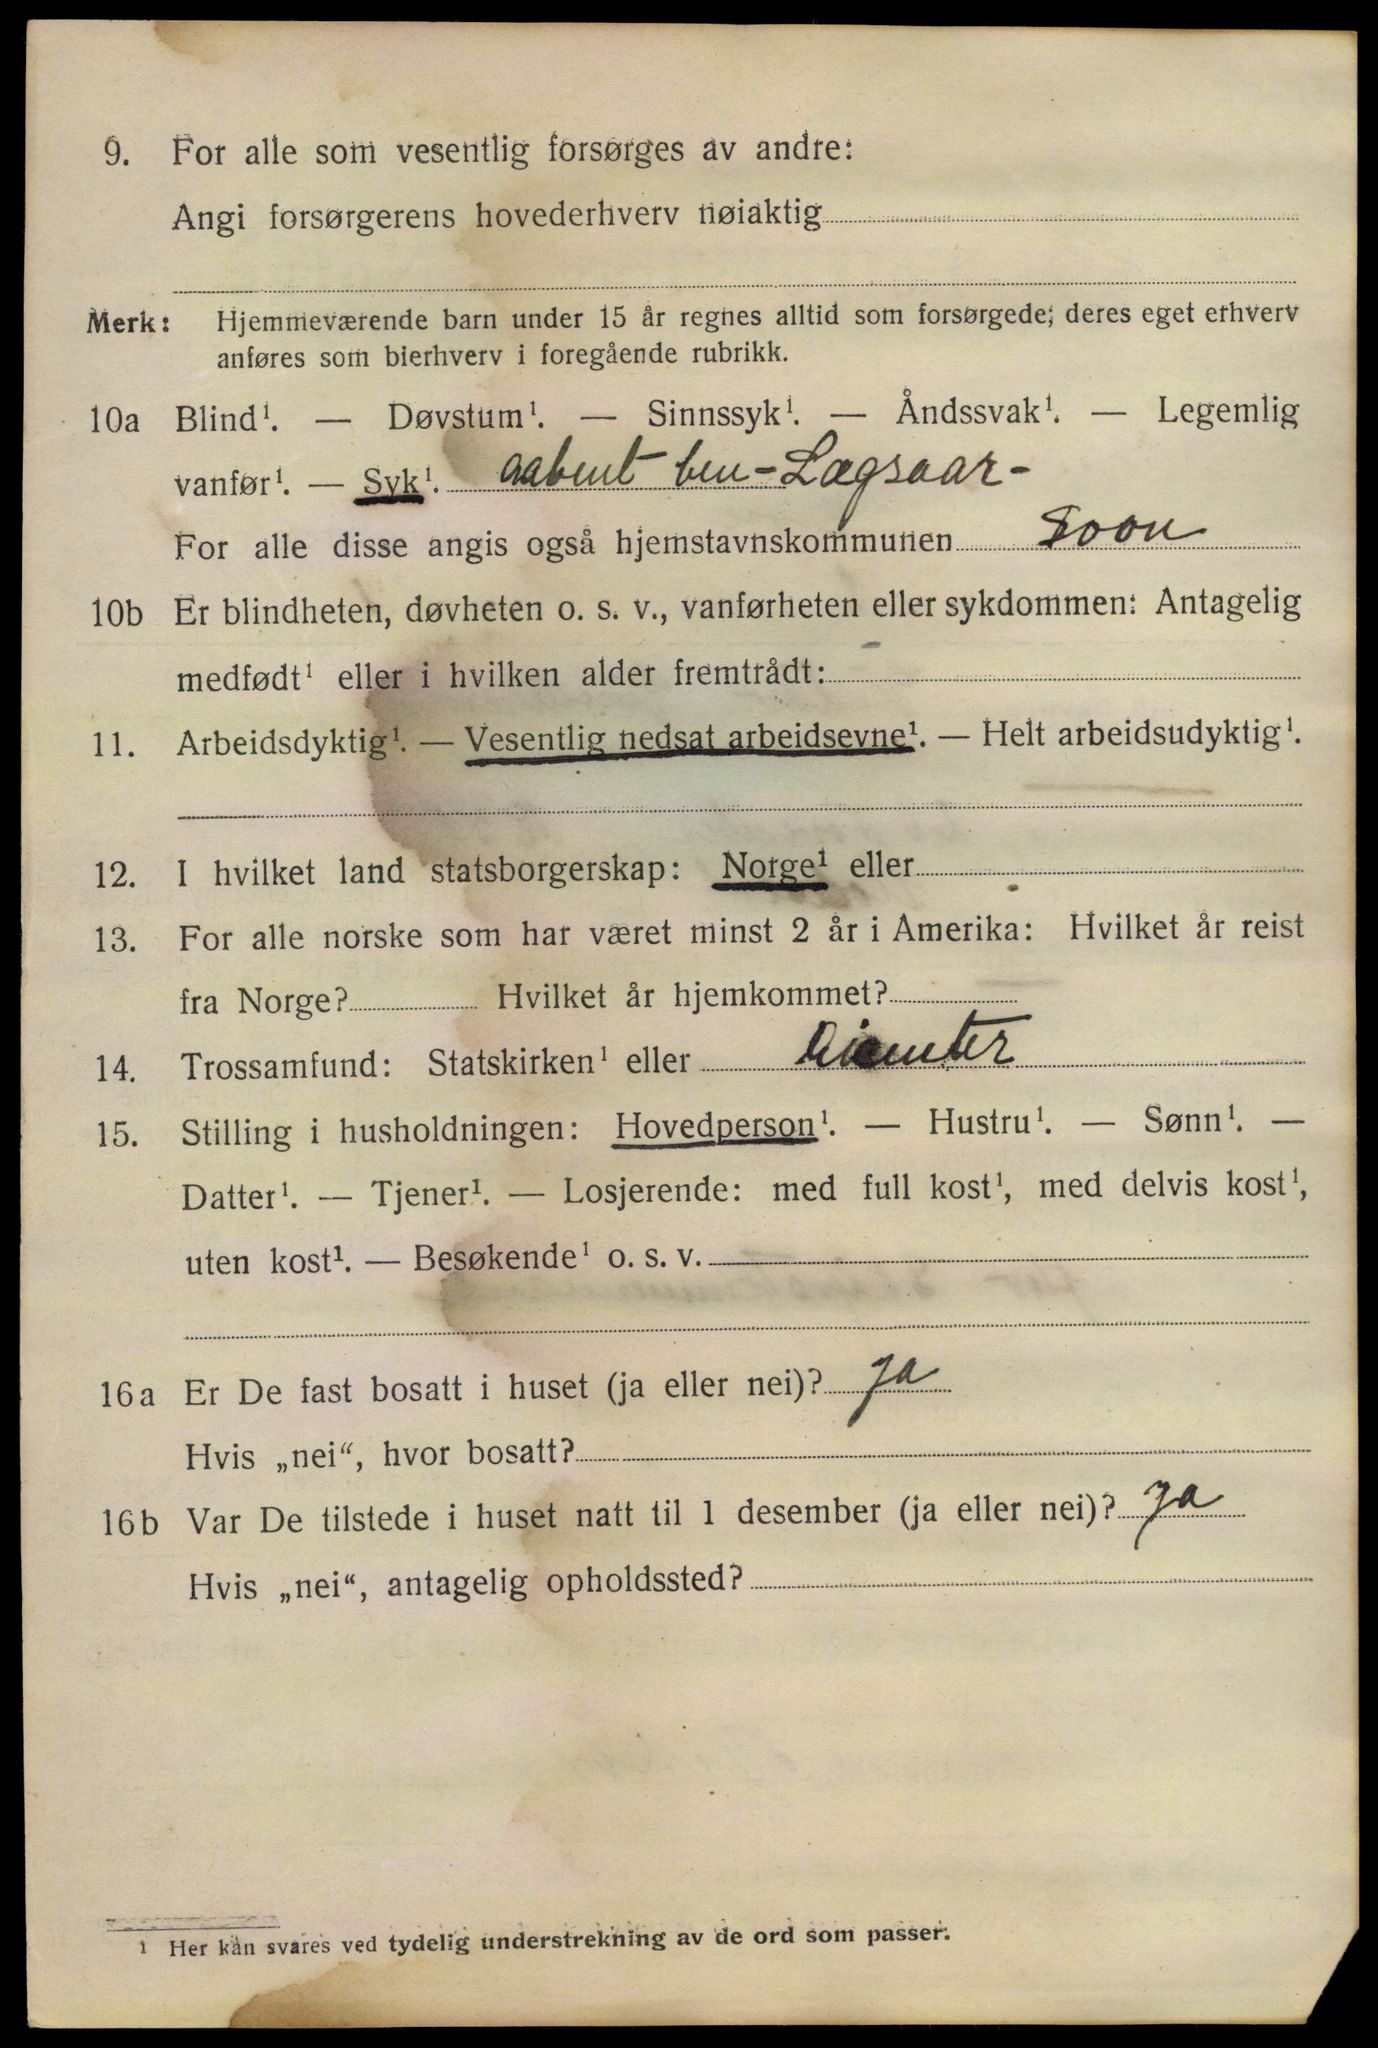 9. For alle som vesentlig forsørges av andre:
Angi forsørgerens hovederhverv nøiaktig
Merk: Hjemmeværende barn under 15 år regnes alltid som forsørgede; deres eget erhverv
anføres som bierhverv i foregående rubrikk.
10a Blind¹. — Døvstum¹. — Sinnssyk¹. — Åndssvak¹. — Legemlig
vanfør¹. — Syk¹. aabent ben - Lægsaar -
For alle disse angis også hjemstavnskommunen Soon
10b Er blindheten, døvheten o. s. v., vanførheten eller sykdommen: Antagelig
medfødt¹ eller i hvilken alder fremtrådt:
11. Arbeidsdyktig¹. — Vesentlig nedsat arbeidsevne¹. — Helt arbeidsudyktig¹.
12. I hvilket land statsborgerskap: Norge¹ eller
13. For alle norske som har været minst 2 år i Amerika: Hvilket år reist
fra Norge? Hvilket år hjemkommet?
14. Trossamfund: Statskirken¹ eller
15. Stilling i husholdningen: Hovedperson¹. — Hustru¹. — Sønn¹. —
Datter¹. — Tjener¹. — Losjerende: med full kost¹, med delvis kost¹,
uten kost¹. — Besøkende¹ o. s. v.
16a Er De fast bosatt i huset (ja eller nei)? ja
Hvis „nei“, hvor bosatt?
16b Var De tilstede i huset natt til 1 desember (ja eller nei)? ja
Hvis „nei“, antagelig opholdssted?
1 Her kan svares ved tydelig understrekning av de ord som passer.